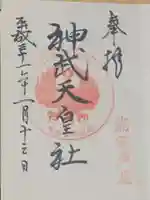 奉拝
神武天皇社
平成三十一年一月十三日